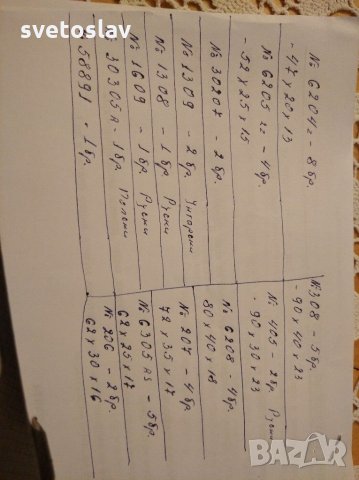 svetoslav
№ 6204г - 8бр.
- 47 x 20 x 13
№ 6205гг - 4бр.
- 52 x 25 x 15
№ 30207 - 2бр.
№ 1309 - 2бр. Унгарски
№ 1308 - 1бр. Руски
№ 1609 - 1бр. Руски
№ 30305А - 1бр. Полски
58891 - 1бр.
№ 308 - 5бр.
- 90 x 40 x 23
№ 405 - 2бр. Руски
- 90 x 30 x 23
№ 6208 - 4бр.
80 x 40 x 18
№ 207 - 4бр.
72 x 35 x 17
№ 6305 RS - 5бр.
62 x 25 x 17
№ 206 - 2бр.
62 x 30 x 16
BAZAR
bg